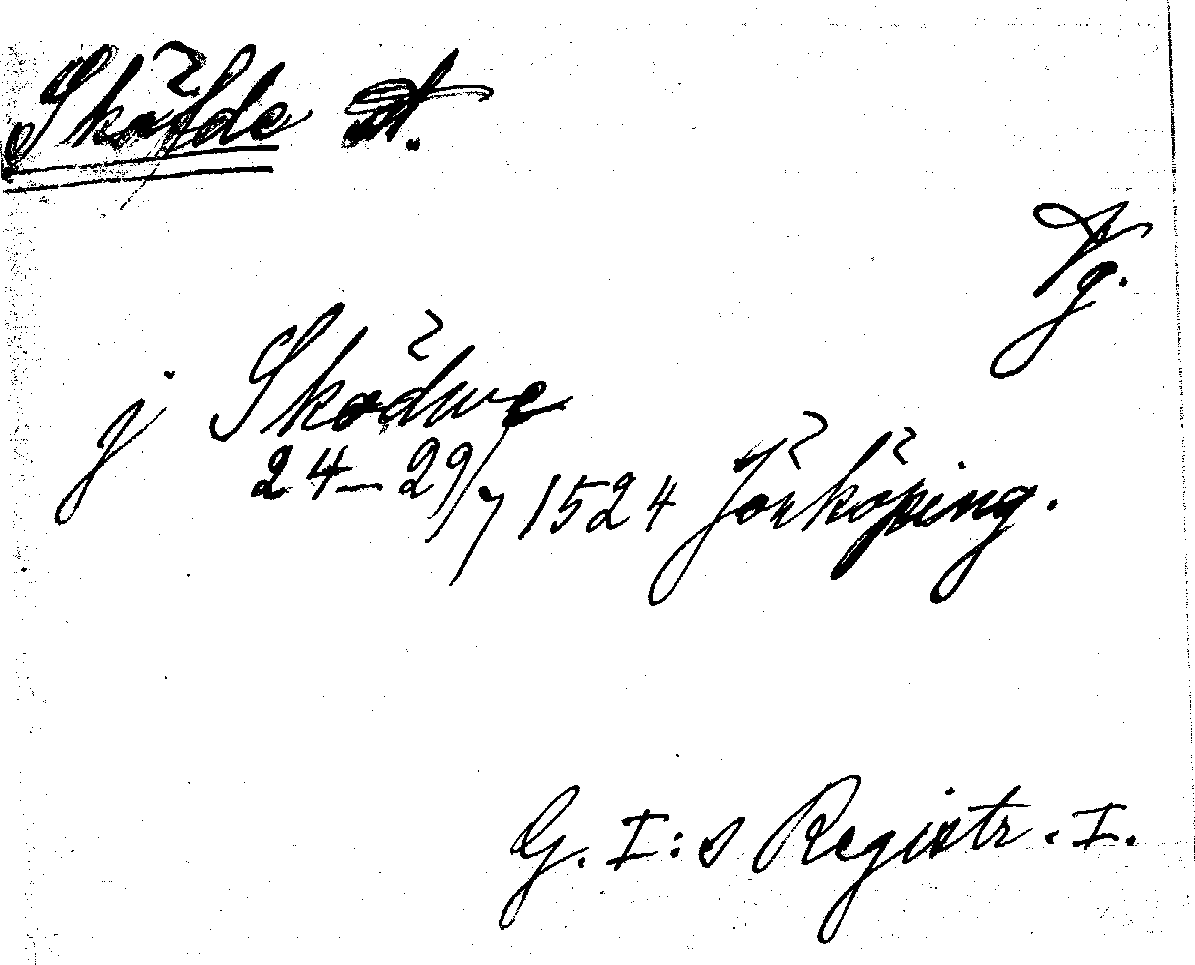 Sköfde st.
Vg.
j Sködwe
24–29/7 1524 Jönköping.
G. I:s Registr. I.